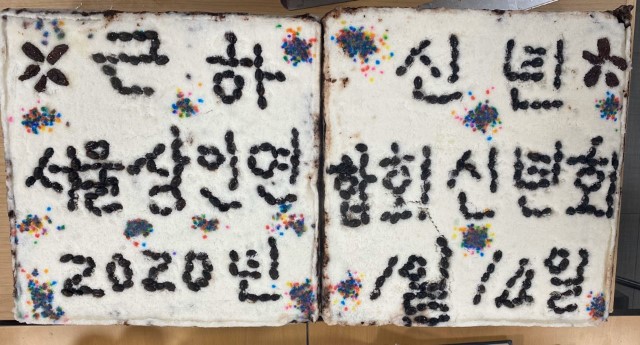 근하 신년
상인연 합회 신년회
2020년 1월 14일